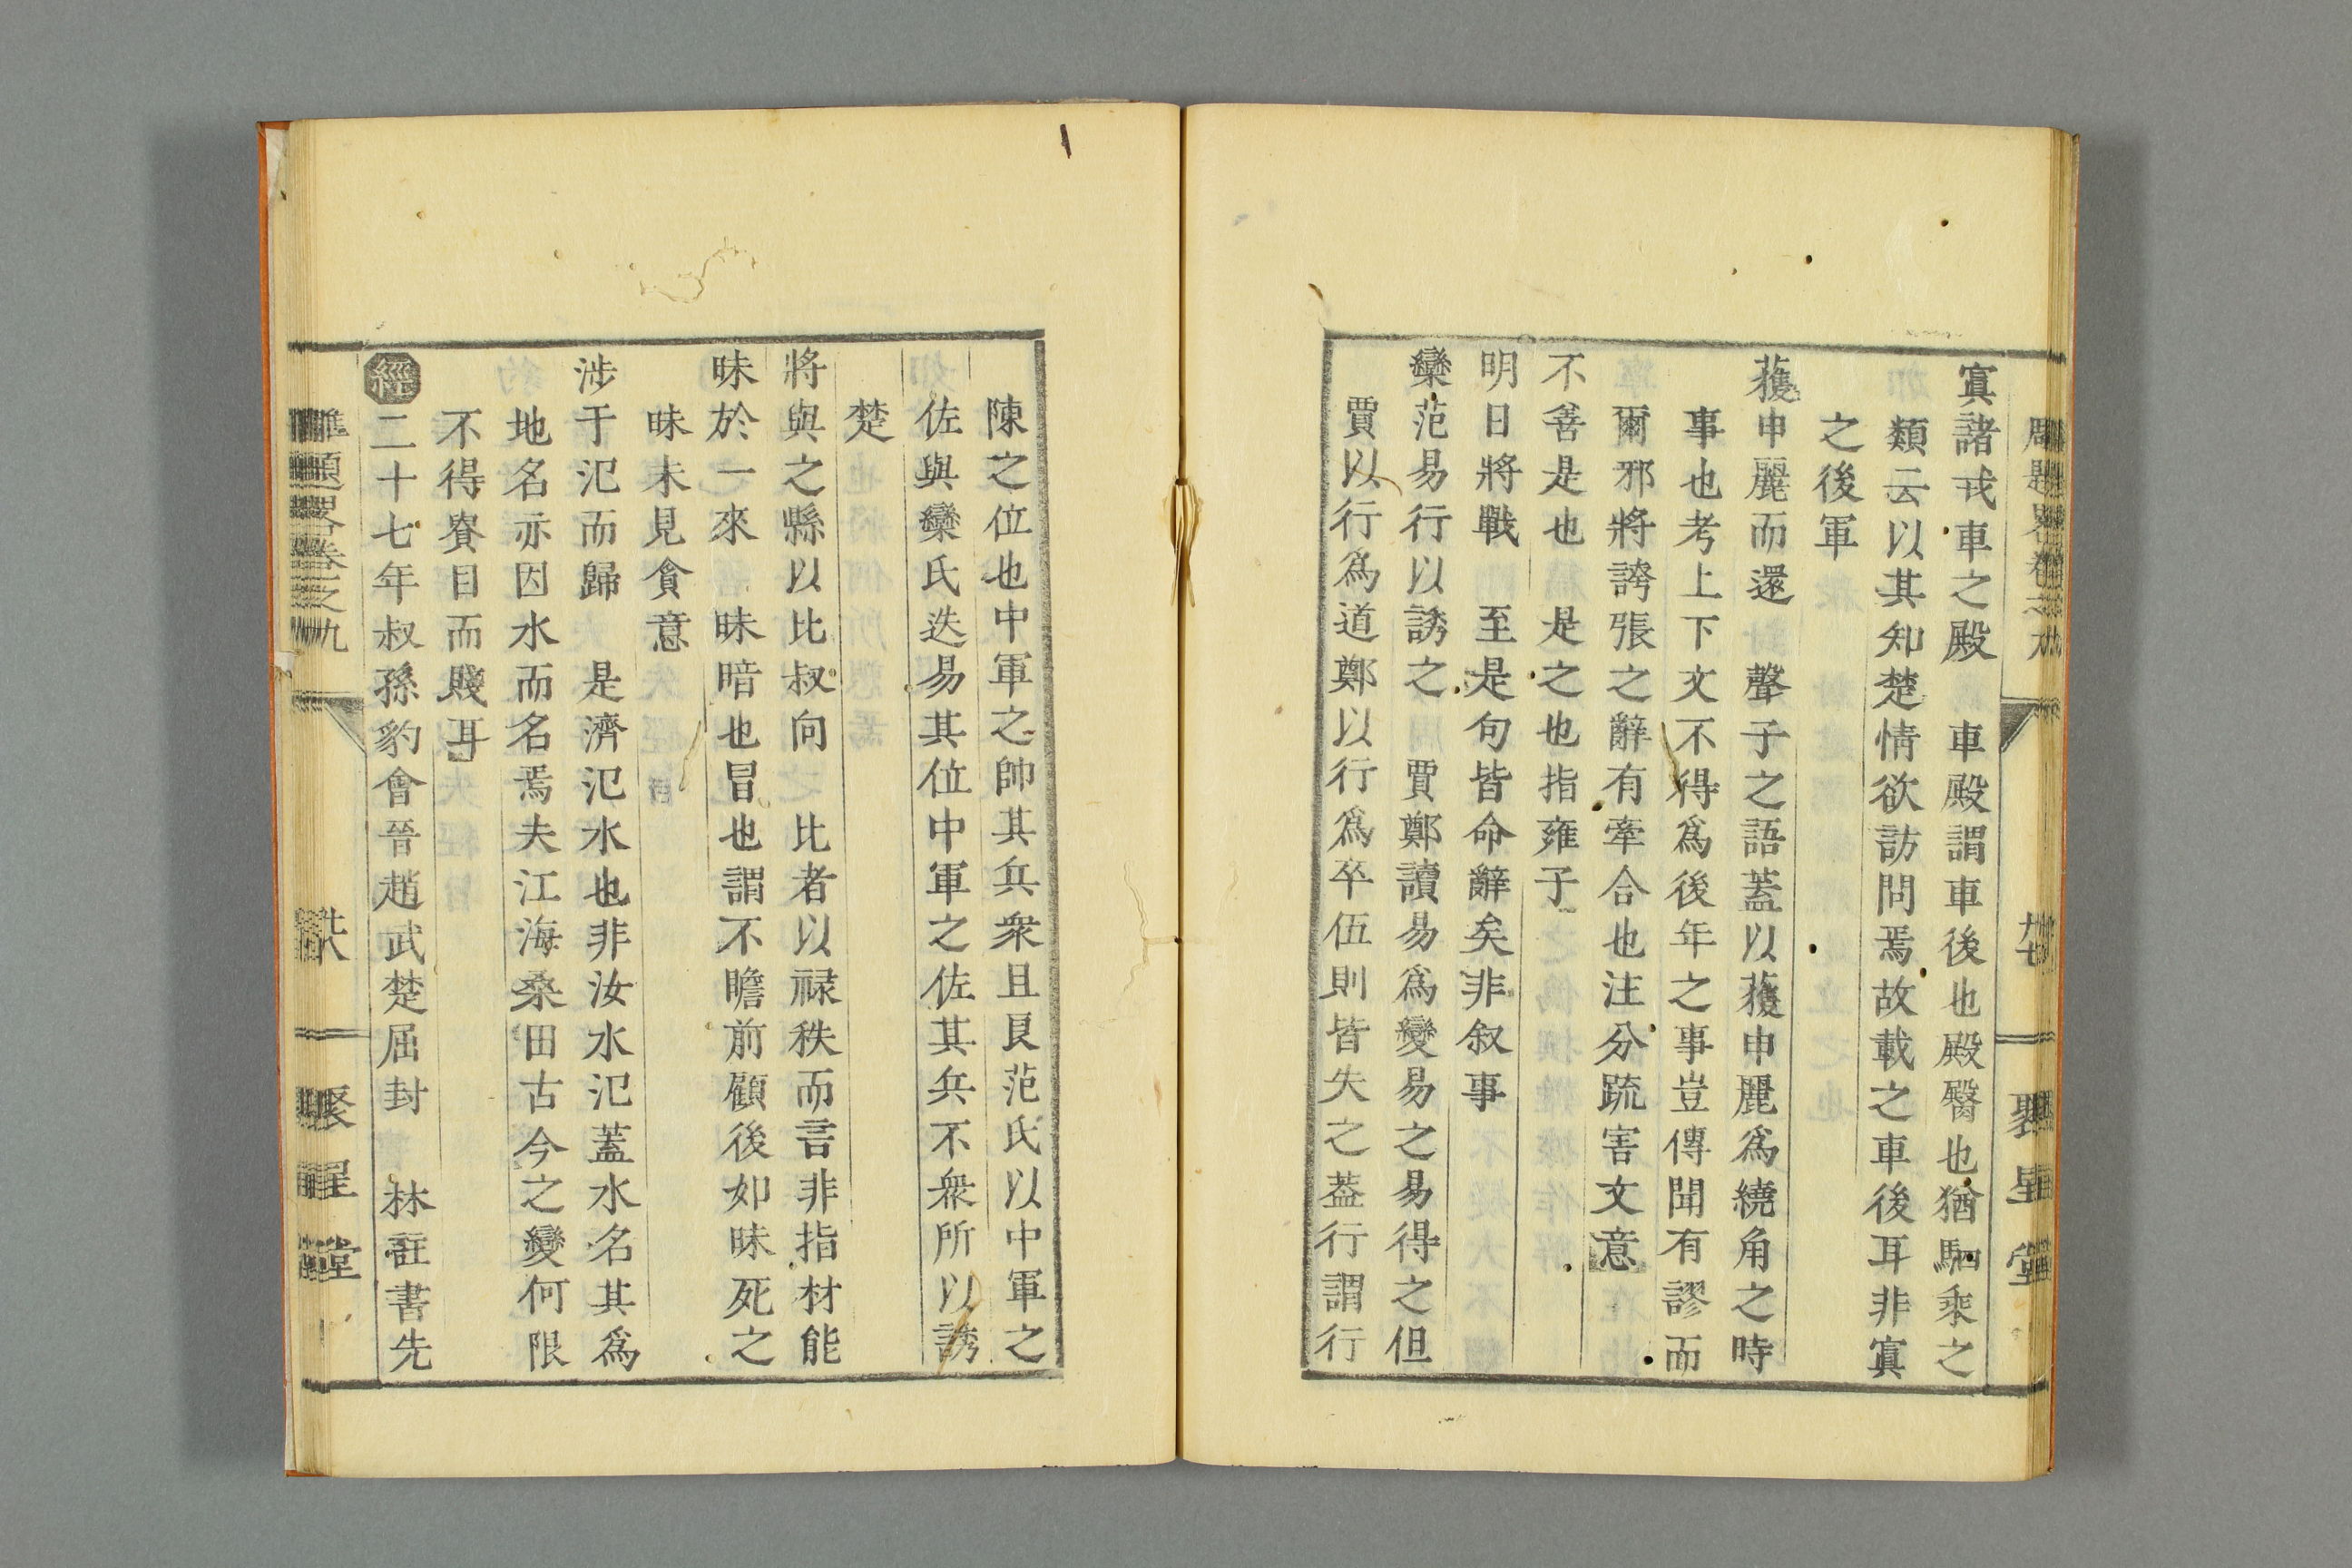 寘諸戎車之殿　車殿謂車後也殿臀也猶駟乘之
類云以其知楚情欲訪問焉故載之車後耳非寘
之後軍
蒦申麗而還　聲子之語蓋以蒦申麗爲繞角之時
事也考上下文不得爲後年之事豈傳聞有謬而
爾邪將誇張之辭有牽合也注分疏害文意
不善是也　是之也指雍子
明日將戰　至是句皆命辭矣非叙事
欒范易行以誘之　賈鄭讀易爲變易之易得之但
賈以行爲道鄭以行爲卒伍則皆失之葢行謂行
陳之位也中軍之帥其兵衆且良范氏以中軍之
佐與欒氏迭易其位中軍之佐其兵不衆所以誘
楚
將與之縣以比叔向　比者以祿秩而言非指材能
昧於一來　昧暗也冒也謂不瞻前顧後如昧死之
昧未見貪意
涉于氾而歸　是濟氾水也非汝水氾蓋水名其爲
地名亦因水而名焉夫江海桑田古今之變何限
不得賽目而賤耳
經　二十七年叔孫豹會晉趙武楚屈封　林註書先
卷之九
星堂